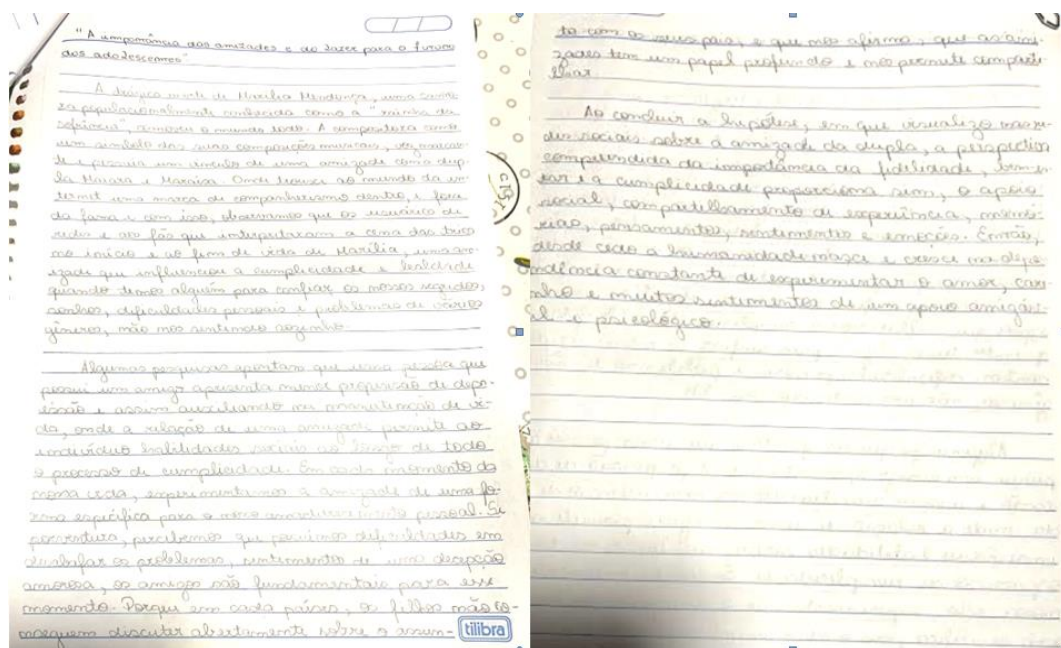 "A importância das amizades e do lazer para o futuro
dos adolescentes"
A trágica morte de Marília Mendonça, uma canto-
ra populacionalmente conhecida como a "rainha da
sofrência", comoveu o mundo todo. A compositora como
um símbolo das suas composições musicais,
de e possuía um vínculo de uma amizade com a dup-
la Maiara e Maraisa. Onde trouxe ao mundo da in-
ternet uma marca de companheirismo dentro, e fora
da fama e com isso, observamos que os usuários de
redes e aos fãs que interpretaram a cena das trios
no início e ao fim de vida de Marília, uma am-
izade que influenciou a cumplicidade e lealdade
quando temos alguém para confiar os nossos segredos,
sonhos, dificuldades pessoais e problemas de vários
gêneros, não nos sentimos sozinho.
Algumas pesquisas apontam que uma pessoa que
possui um amigo apresenta menor propensão de depr-
essão e assim auxiliando na manutenção de vi-
da, onde a relação de uma amizade permite ao
indivíduo habilidades sociais ao longo de todo
o processo de cumplicidade. Em cada momento da
nossa vida, experimentamos a amizade de uma fo-
rma específica para o nosso amadurecimento pessoal. Se
porventura, percebemos que possuímos dificuldades em
desabafar os problemas, sentimentos de uma decepção
amorosa, os amigos são fundamentais para esse
momento. Porque em cada países, os filhos não co-
nseguem discutir abertamente sobre o assun-
tilibra
to com os seus pais, e que nos afirma, que as ami-
zades tem um papel profundo e nos permite comparti-
lhar.
Ao concluir a hipótese, em que visualizo nas re-
des sociais sobre a amizade da dupla, a perspectiva
compreendida da importância da fidelidade,
e a cumplicidade proporciona sim, o apoio
social, compartilhamento de experiência, memó-
rias, pensamentos, sentimentos e emoções. Então,
desde cedo a humanidade nasce e cresce na depe-
ndência constante de experimentar o amor, cari-
nho e muitos sentimentos de um apoio amigáv-
el e psicológico.